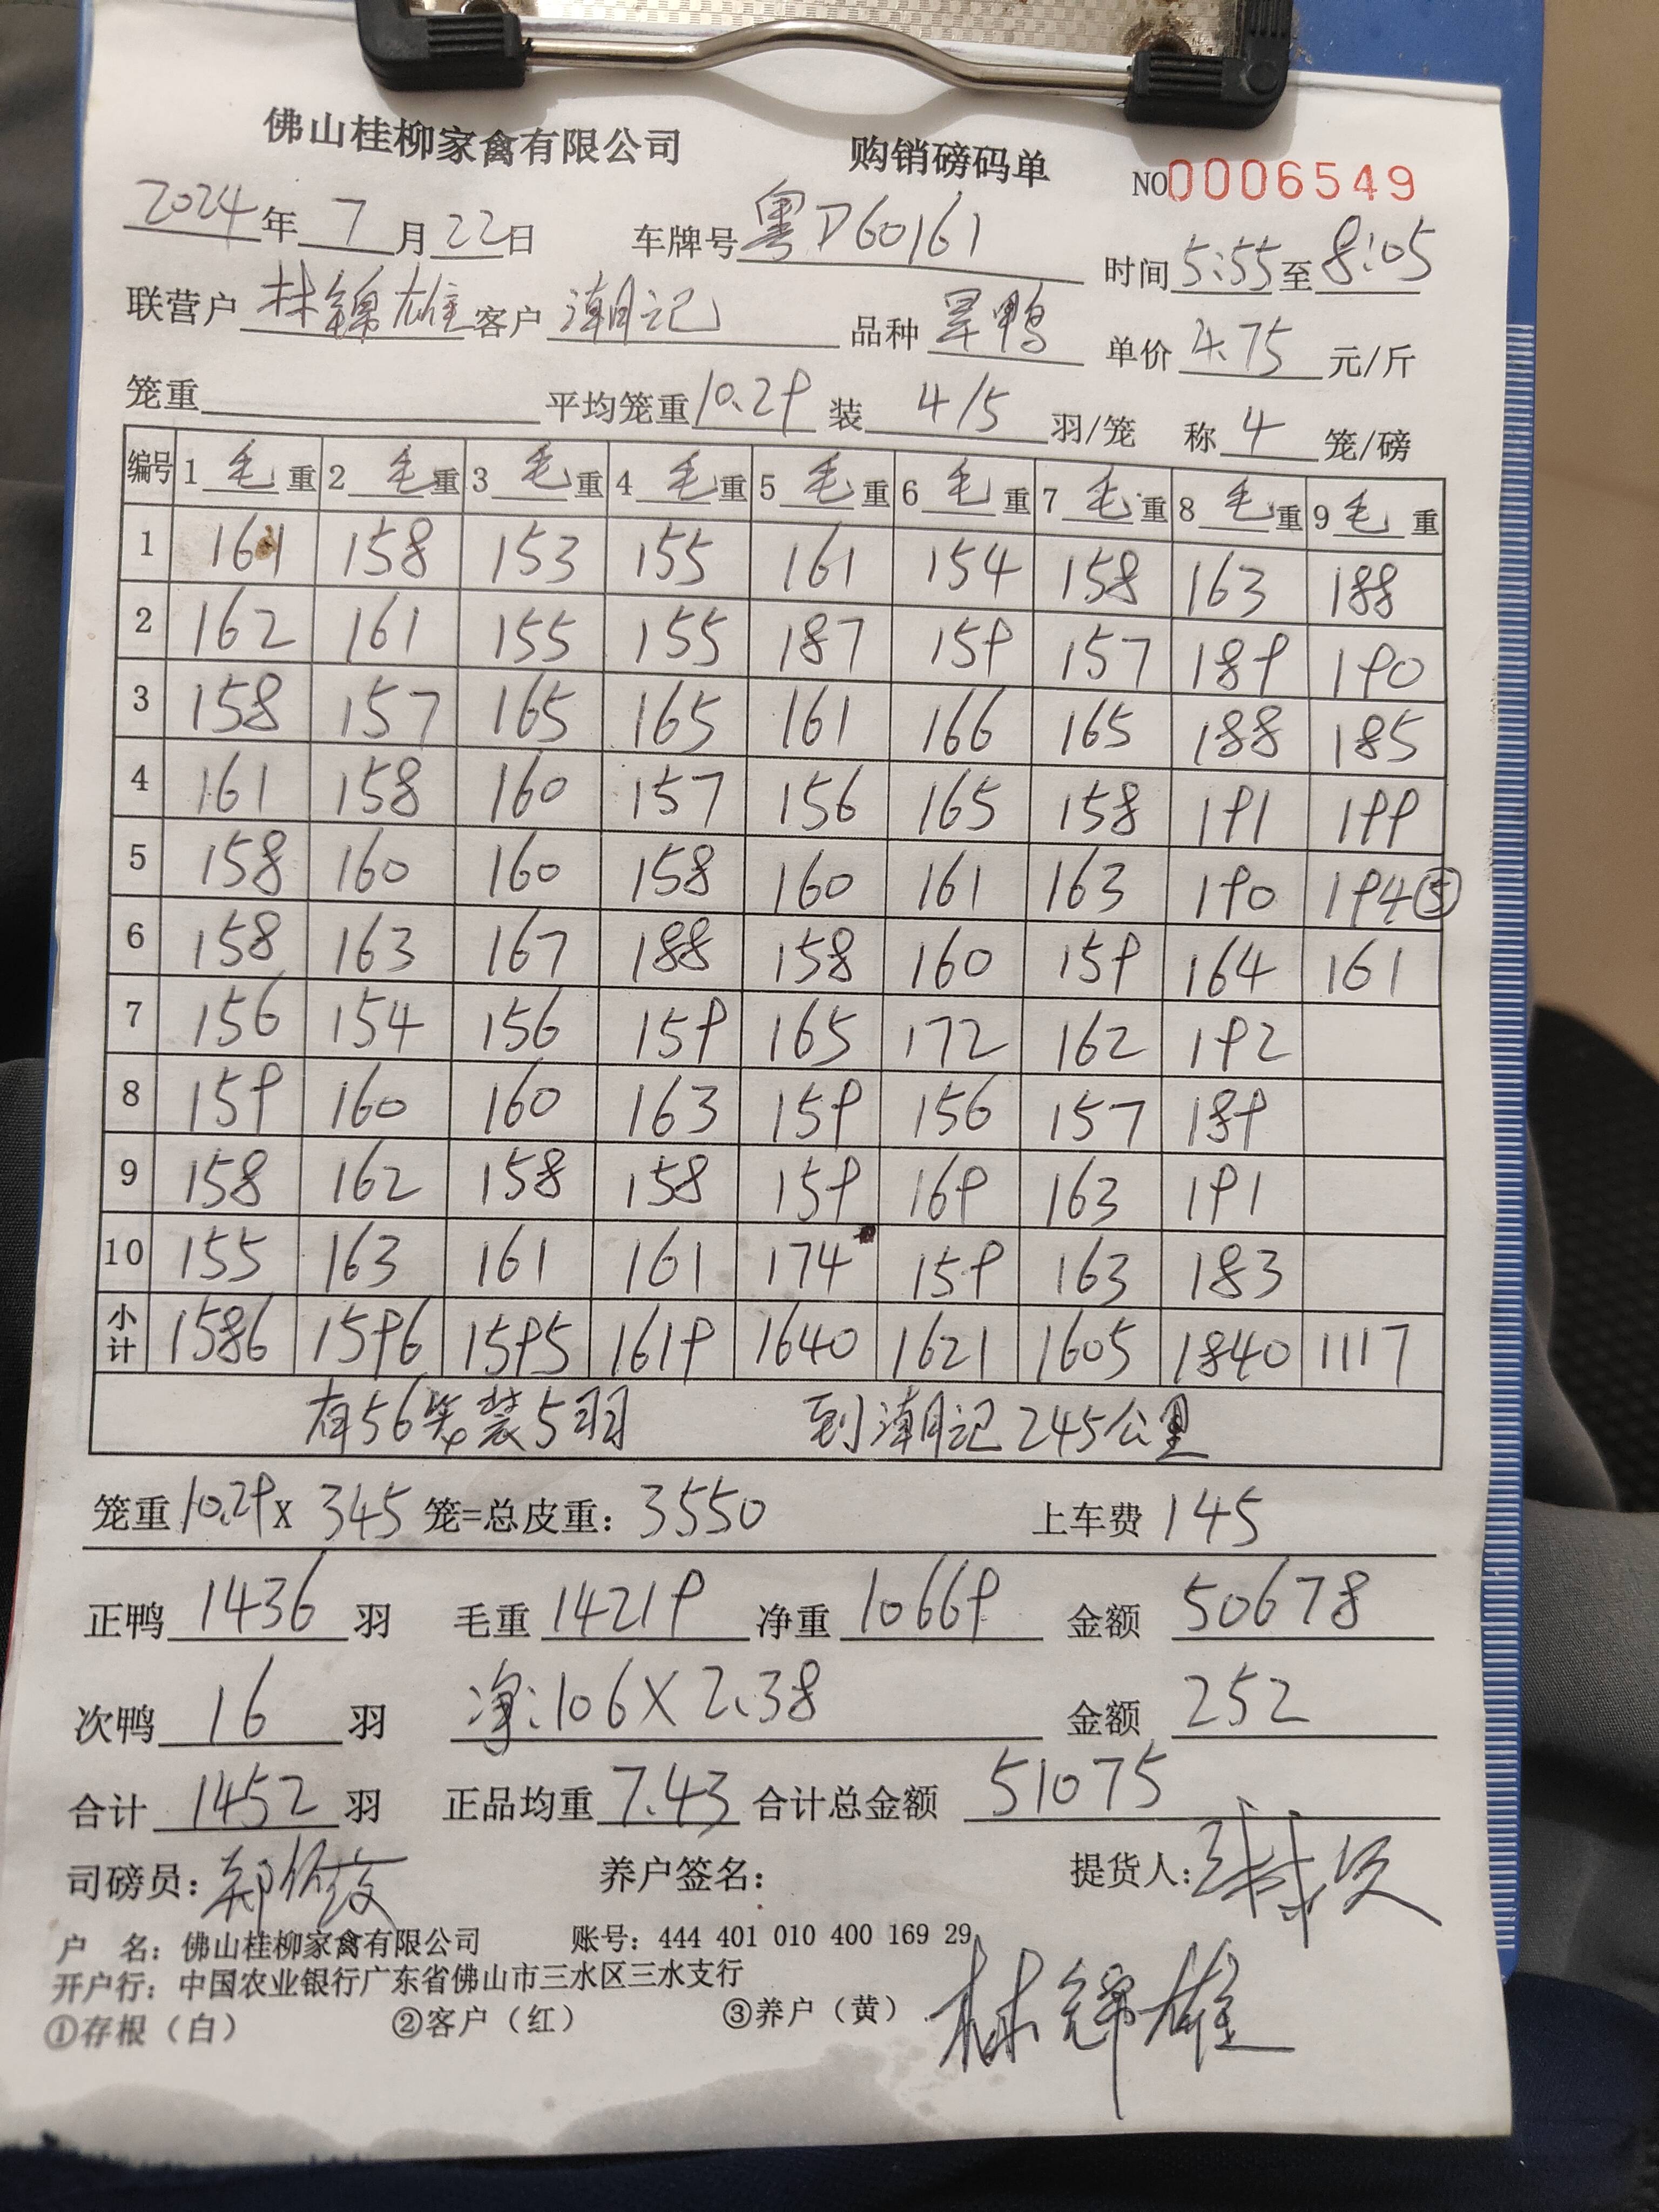 佛山桂柳家禽有限公司 购销磅码单 NO0006549
2024年7月22日 车牌号粤D60161 时间5:55至8:05
联营户林锦雄客户潮记 品种 单价4.75元/斤
笼重 平均笼重10.29装4/5羽/笼 称4笼/磅
编号 1毛重 2毛重 3毛重 4毛重 5毛重 6毛重 7毛重 8毛重 9毛重
1 161 158 153 155 161 154 158 163 188
2 162 161 155 155 187 159 157 189 190
3 158 157 165 165 161 166 165 188 185
4 161 158 160 157 156 165 158 191 199
5 158 160 160 158 160 161 163 190 194⑤
6 158 163 167 188 158 160 159 164 161
7 156 154 156 159 165 172 162 192
8 159 160 160 163 159 156 157 189
9 158 162 158 158 159 169 163 191
10 155 163 161 161 174 159 163 183
小计 1586 1596 1595 1619 1640 1621 1605 1840 1117
有56笼装5羽 到潮记245公里
笼重10.29X345笼=总皮重：3550 上车费145
正鸭1436羽 毛重14219净重10669 金额50678
次鸭16羽 净:106X2.38 金额252
合计1452羽 正品均重7.43合计总金额51075
司磅员： 养户签名： 提货人：
户 名：佛山桂柳家禽有限公司 账号：444 401 010 400 169 29
开户行：中国农业银行广东省佛山市三水区三水支行
①存根（白） ②客户（红） ③养户（黄） 林锦雄